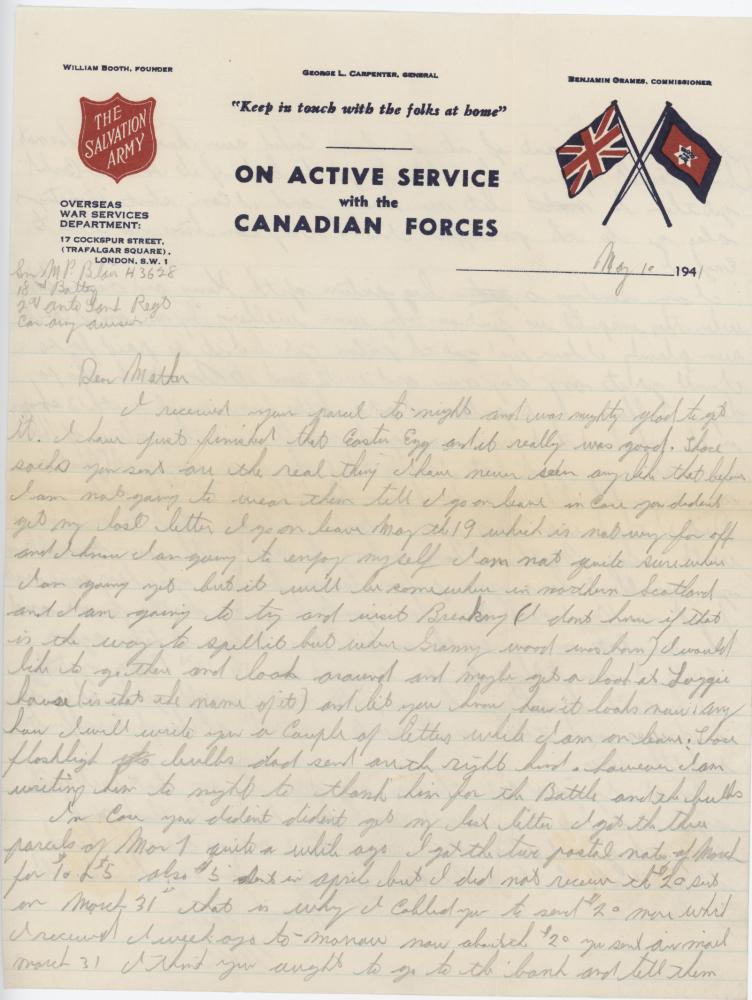 WILLIAM BOOTH, FOUNDER
GEORGE L. CARPENTER, GENERAL
BENJAMIN ORAMES, COMMISSIONER
"Keep in touch with the folks at home"
THE
SALVATION
ARMY
ON ACTIVE SERVICE
with the
CANADIAN FORCES
OVERSEAS
WAR SERVICES
DEPARTMENT:
17 COCKSPUR STREET,
(TRAFALGAR SQUARE),
LONDON, S.W. 1
May 10 1941
M P. Blair H3628
18th Battery
2nd Regt
Can army overseas
Dear Mother
I received your parcel to-night and was mighty glad to get
it. I have just finished that Easter Egg and it really was good. Those
socks you sent are the real thing I have never seen any like that before
I am not going to wear them till I go on leave in case you dident
get my last letter I go on leave May the 19 which is not very far off
and I know I am going to enjoy myself I am not quite sure where
I am going yet but it will be somewhere in northern Scotland
and I am going to try and visit (I dont know if that
is the way to spell it but where Granny wood was born) I would
like to go there and look around and maybe get a look at Luggie
house (is that the name of it) and let you know how it looks now. Any
how I will write you a couple of letters while I am on leave. Those
flashligh bulbs dad send are the right kind. however I am
writing him to night to thank him for the Battle and the bulbs
In Case you dident dident get my last letter I got the three
parcels of Mar 7 quite a while ago I got the two postal notes of March
for $10 & $5 also $5 sent in april but I did not receive the $20 sent
on March 31" that is why I Cabled you to send $20 more which
I received I week ago to-morrow now about the $20 you sent air mail
march 31 I think you aught to go to the bank and tell them